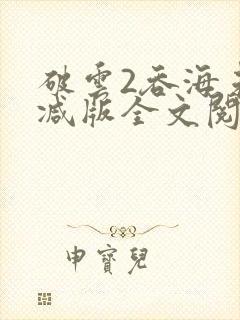 破雲2吞海未
减版全文閱
申寶兒